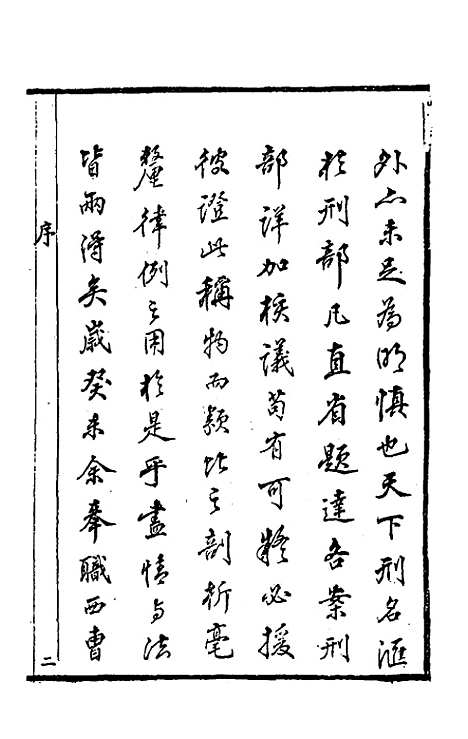 外亦未足為明慎也天下刑名滙
於刑部凡直省題達各案刑
部詳加核議苟有可疑必援
彼證此稱物而類比之剖析毫
釐律例之用於是乎盡情与法
皆兩得矣歲癸未余奉職西曹
序
二